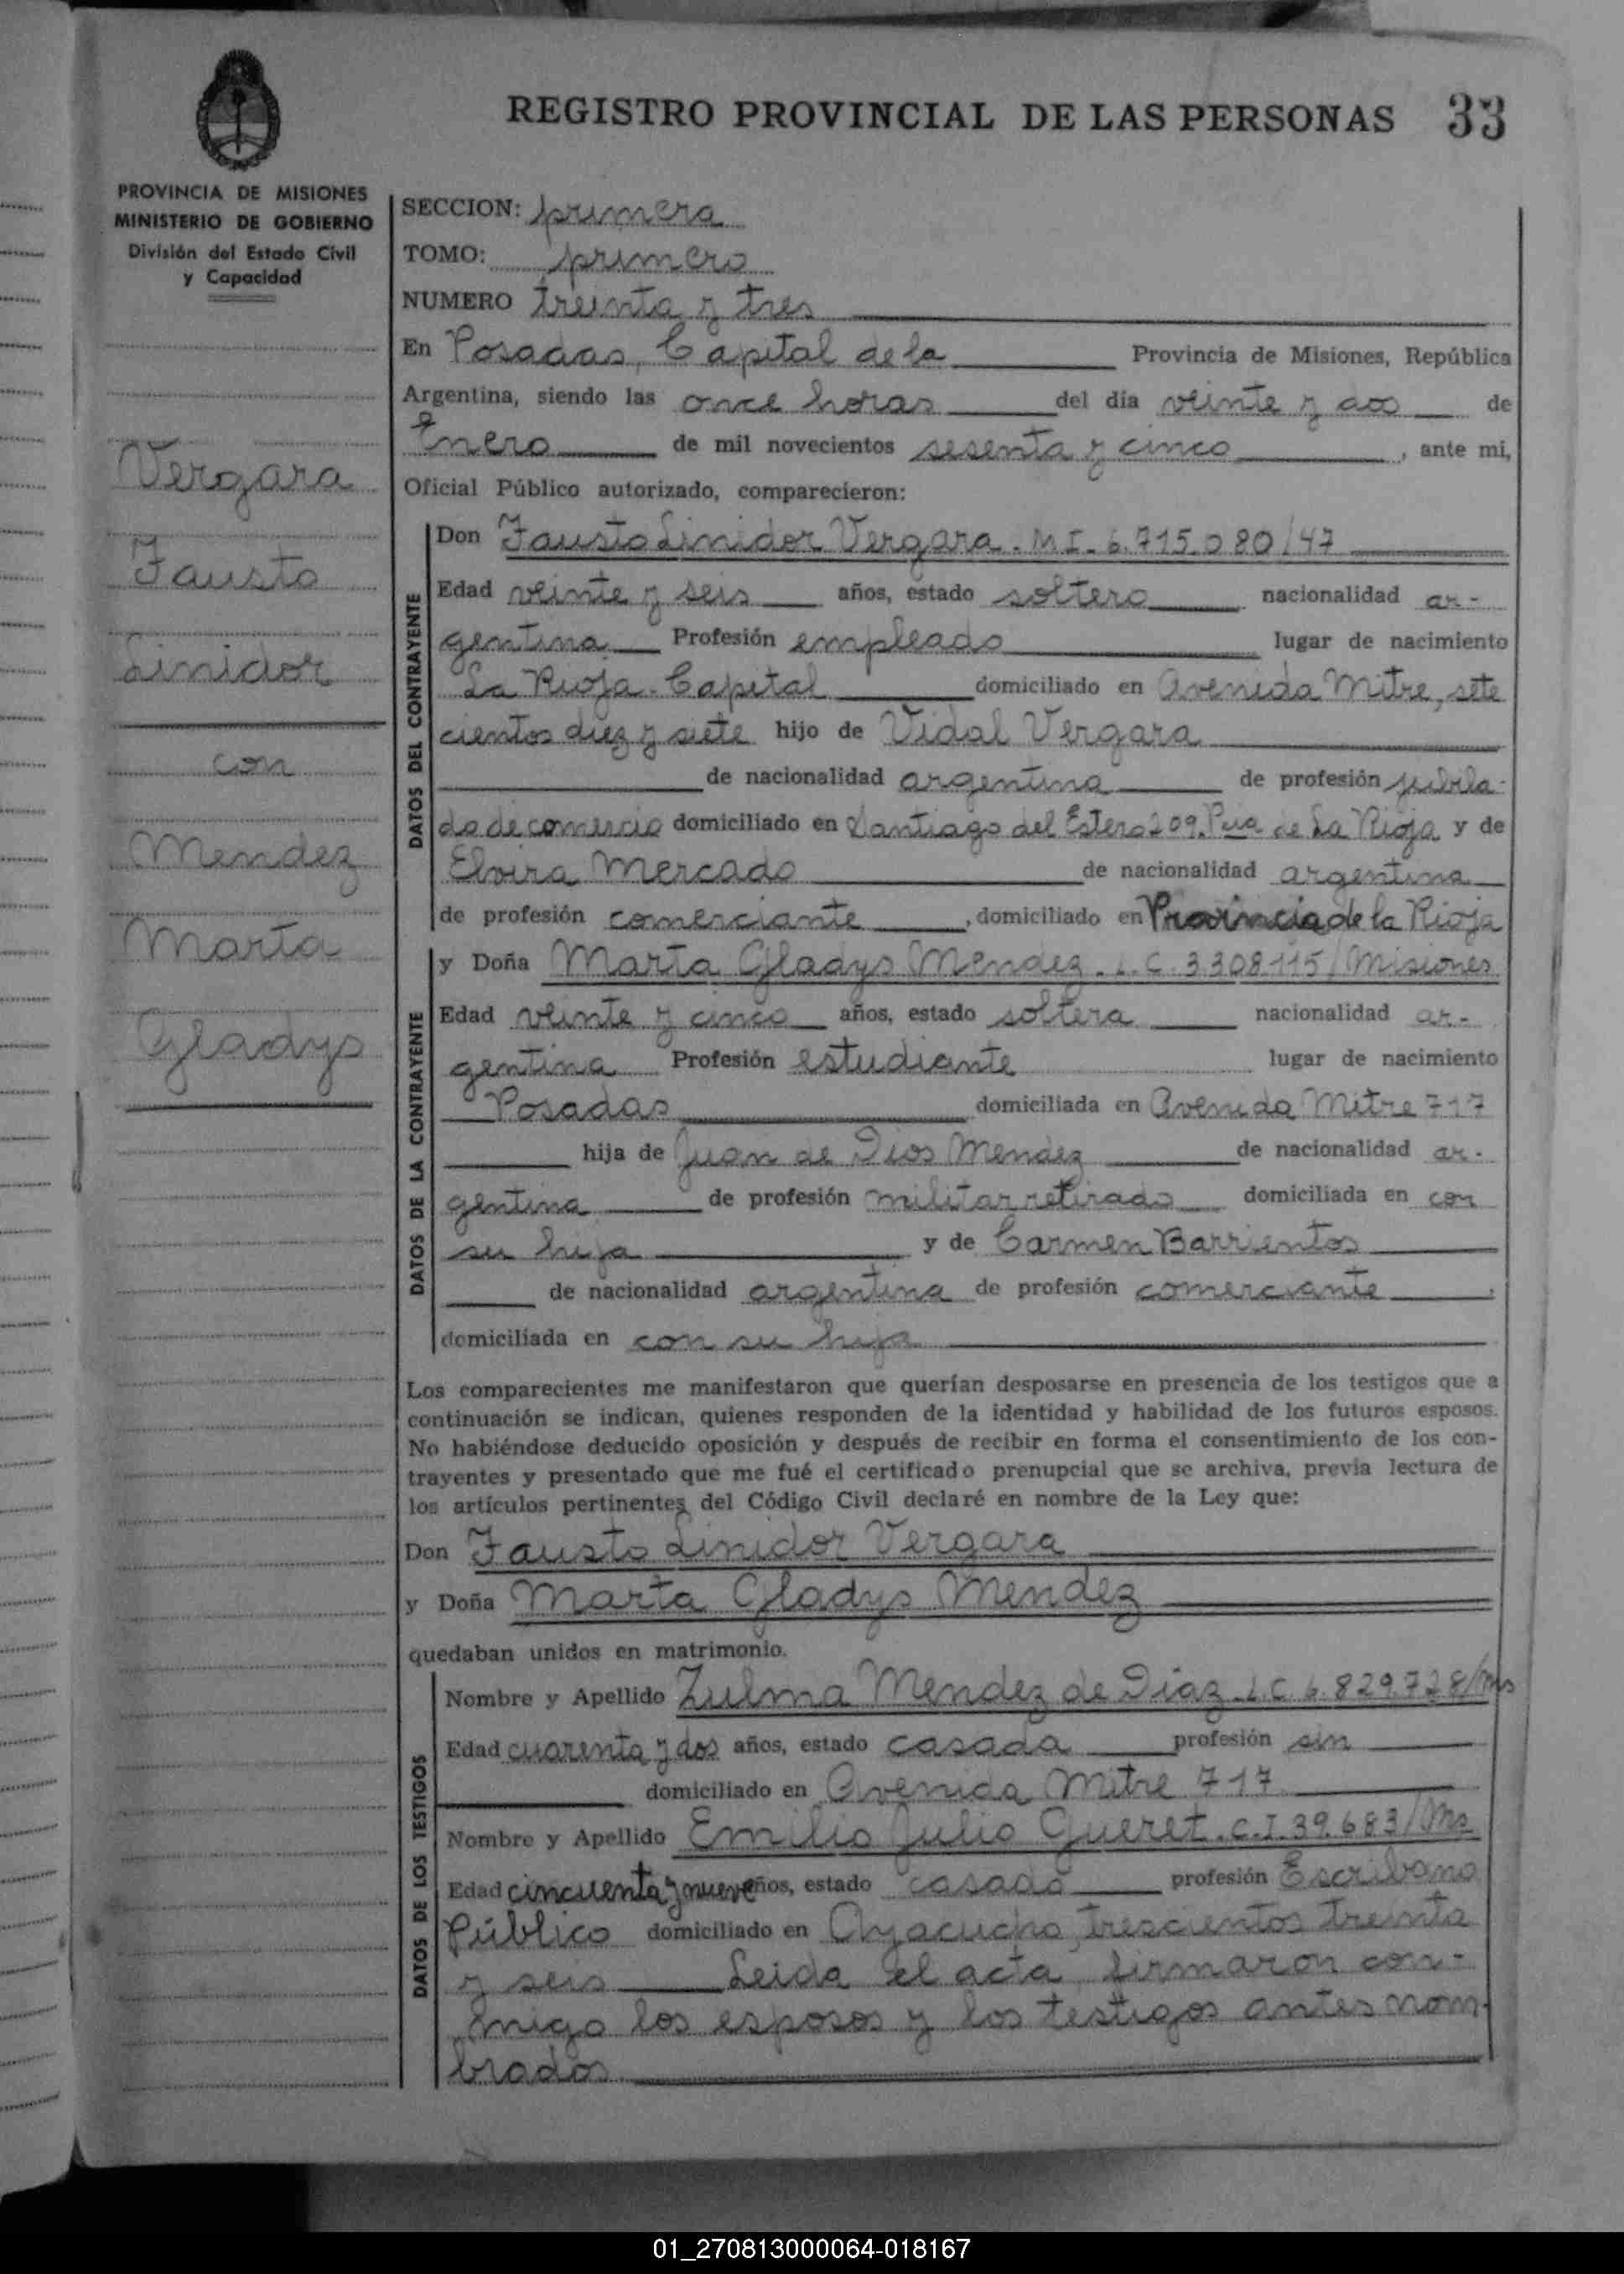 REGISTRO PROVINCIAL DE LAS PERSONAS 33
PROVINCIA DE MISIONES
MINISTERIO DE GOBIERNO
División del Estado Civil
y Capacidad
Vergara
Fausto
Linidor
con
Mendez
Marta
Gladys
SECCION: primera
TOMO: primero
NUMERO treinta y tres
En Posadas, Capital de la Provincia de Misiones, República
Argentina, siendo las once horas del día veinte y dos de
Enero de mil novecientos sesenta y cinco, ante mi,
Oficial Público autorizado, comparecieron:
DATOS DEL CONTRAYENTE
Don Fausto Linidor Vergara. M I. 6.715.080/47
Edad veinte y seis años, estado soltero nacionalidad ar-
gentina Profesión empleado lugar de nacimiento
La Rioja. Capital domiciliado en Avenida Mitre, sete
cientos diez y siete hijo de Vidal Vergara
de nacionalidad argentina de profesión jubila-
do de comercio domiciliado en Santiago del Estero 209. Pcia de La Rioja y de
Elvira Mercado de nacionalidad argentina
de profesión comerciante, domiciliado en Provincia de la Rioja
DATOS DE LA CONTRAYENTE
y Doña Marta Gladys Mendez. L.C. 3308115/Misiones
Edad veinte y cinco años, estado soltera nacionalidad ar-
gentina Profesión estudiante lugar de nacimiento
Posadas domiciliada en Avenida Mitre 717
hija de Juan de Dios Mendez de nacionalidad ar-
gentina de profesión militar retirado domiciliada en con
su hija y de Carmen Barrientos
de nacionalidad argentina de profesión comerciante,
domiciliada en con su hija
Los comparecientes me manifestaron que querían desposarse en presencia de los testigos que a
continuación se indican, quienes responden de la identidad y habilidad de los futuros esposos.
No habiéndose deducido oposición y después de recibir en forma el consentimiento de los con-
trayentes y presentado que me fué el certificado prenupcial que se archiva, previa lectura de
los artículos pertinentes del Código Civil declaré en nombre de la Ley que:
Don Fausto Linidor Vergara
y Doña Marta Gladys Mendez
quedaban unidos en matrimonio.
DATOS DE LOS TESTIGOS
Nombre y Apellido Zulma Mendez de Diaz. L.C. 6.829.728/Ms
Edad cuarenta y dos años, estado casada profesión sin
domiciliado en Avenida Mitre 717
Nombre y Apellido Emilio Julio Gueret. C.I. 39.683/Ms
Edad cincuenta y nueve años, estado casado profesión Escribano
Público domiciliado en Ayacucho, trescientos treinta
y seis Leida el acta, firmaron con-
migo los esposos y los testigos antes nom-
brados
01_270813000064-018167